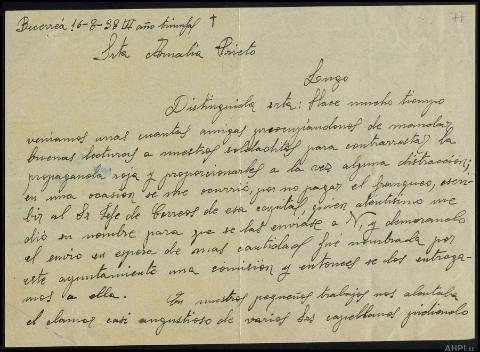 Becerreá 16-8-38 III año triunfal †
77
Srta Amalia Prieto
Lugo
Distinguida srta: Hace mucho tiempo
veniamos unas cuantas amigas preocupandonos de mandar
buenas lecturas a nuestros soldaditos para contrarrestar la
propaganda roja y proporcionarles a la vez alguna distracción;
en una ocasion se me ocurrió, por no pagar el franqueo, escri-
bir al Sr Jefe de Correos de esa capital quien atentísimo me
dió su nombre para que se las enviáse a V, y demorando
el envio en espera de mas cantidad fué nombrada por
este ayuntamiento una comision y entonces se los entrega-
mos a ella. En nuestros pequeños trabajos nos alentaba
el clamor casi angustioso de varios Srs capellanes pidiendo
AHPLu